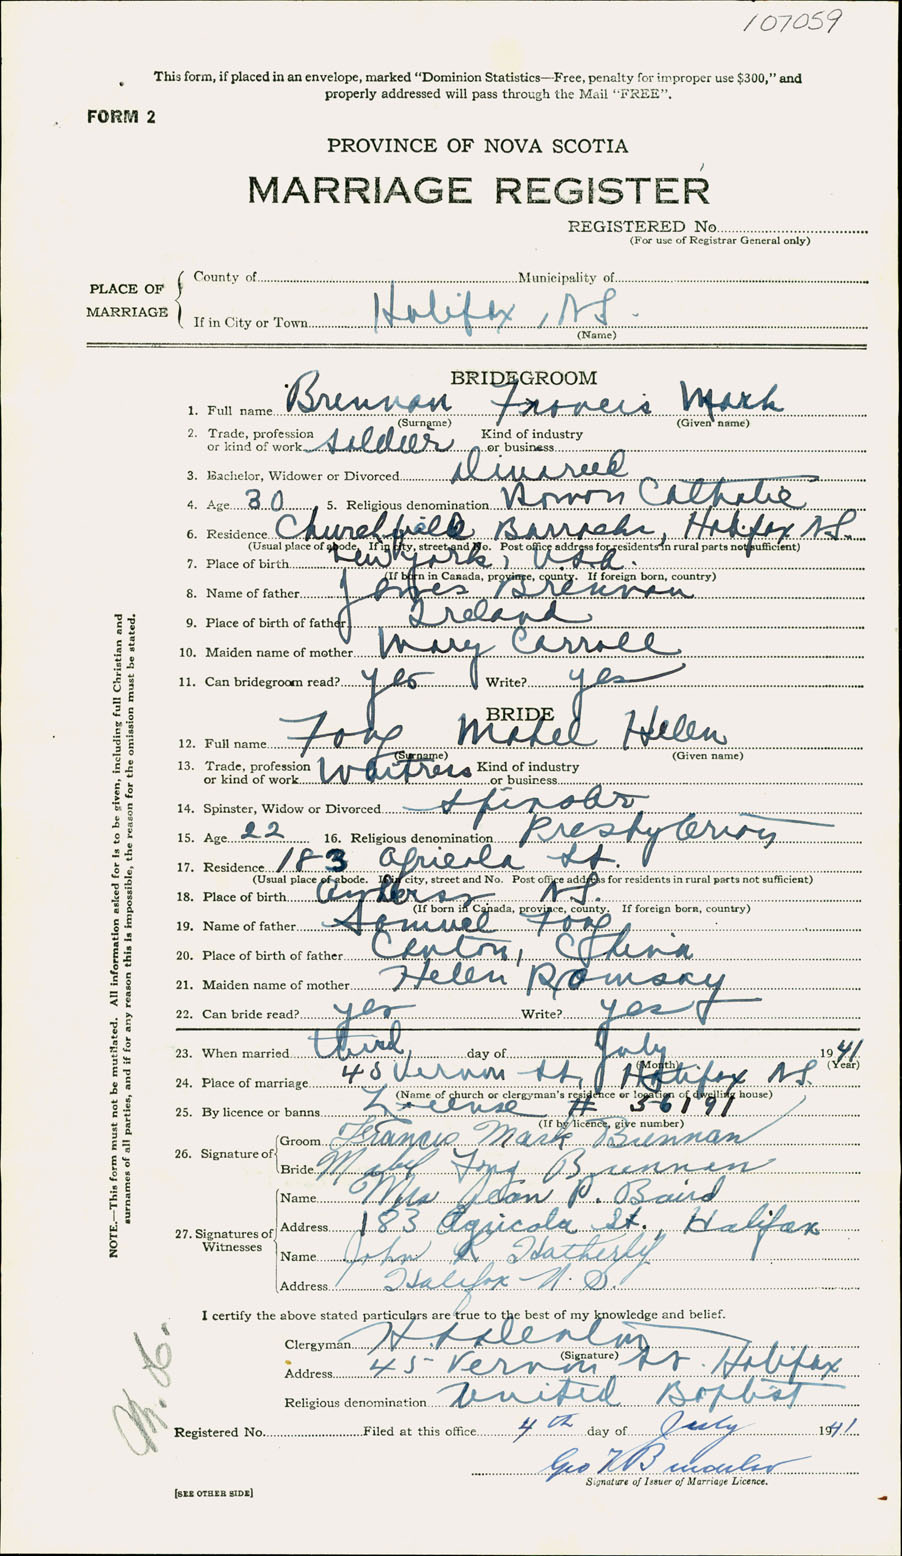 107059
This form, if placed in an envelope, marked "Dominion Statistics—Free, penalty for improper use $300," and
properly addressed will pass through the Mail "FREE".
FORM 2
PROVINCE OF NOVA SCOTIA
MARRIAGE REGISTER
REGISTERED No.
(For use of Registrar General only)
PLACE OF MARRIAGE
County of Municipality of
If in City or Town Halifax, N.S.
(Name)
BRIDEGROOM
1. Full name Brennan Francis Mark
(Surname) (Given name)
2. Trade, profession or kind of work Soldier Kind of industry or business
3. Bachelor, Widower or Divorced Divorced
4. Age 30 5. Religious denomination Roman Catholic
6. Residence Churchfield Barracks, Halifax N.S.
(Usual place of abode. If in city, street and No. Post office address for residents in rural parts not sufficient)
7. Place of birth New York, U.S.A.
(If born in Canada, province, county. If foreign born, country)
8. Name of father James Brennan
9. Place of birth of father Ireland
10. Maiden name of mother Mary Carroll
11. Can bridegroom read? yes Write? yes
BRIDE
12. Full name Fong Mabel Helen
(Surname) (Given name)
13. Trade, profession or kind of work Waitress Kind of industry or business
14. Spinster, Widow or Divorced Spinster
15. Age 22 16. Religious denomination Presbyterian
17. Residence 183 Agricola St.
(Usual place of abode. If in city, street and No. Post office address for residents in rural parts not sufficient)
18. Place of birth Amherst N.S.
(If born in Canada, province, county. If foreign born, country)
19. Name of father Samuel Fong
20. Place of birth of father Canton, China
21. Maiden name of mother Helen Ramsay
22. Can bride read? yes Write? yes
23. When married third, day of July 1941
(Month) (Year)
24. Place of marriage 45 Vernon St, Halifax N.S.
(Name of church or clergyman's residence or location of dwelling house)
25. By licence or banns License # 56191
(If by licence, give number)
26. Signature of Groom Francis Mark Brennan
Bride Mabel Fong Brennan
27. Signatures of Witnesses
Name Mrs Jean P. Baird
Address 183 Agricola St., Halifax
Name John R. Hatherly
Address Halifax N.S.
I certify the above stated particulars are true to the best of my knowledge and belief.
Clergyman
(Signature)
Address 45 Vernon St. Halifax
Religious denomination United Baptist
Registered No. Filed at this office 4th day of July 1941
Geo
Signature of Issuer of Marriage Licence.
[SEE OTHER SIDE]
NOTE.—This form must not be mutilated. All information asked for is to be given, including full Christian and
surnames of all parties, and if for any reason this is impossible, the reason for the omission must be stated.